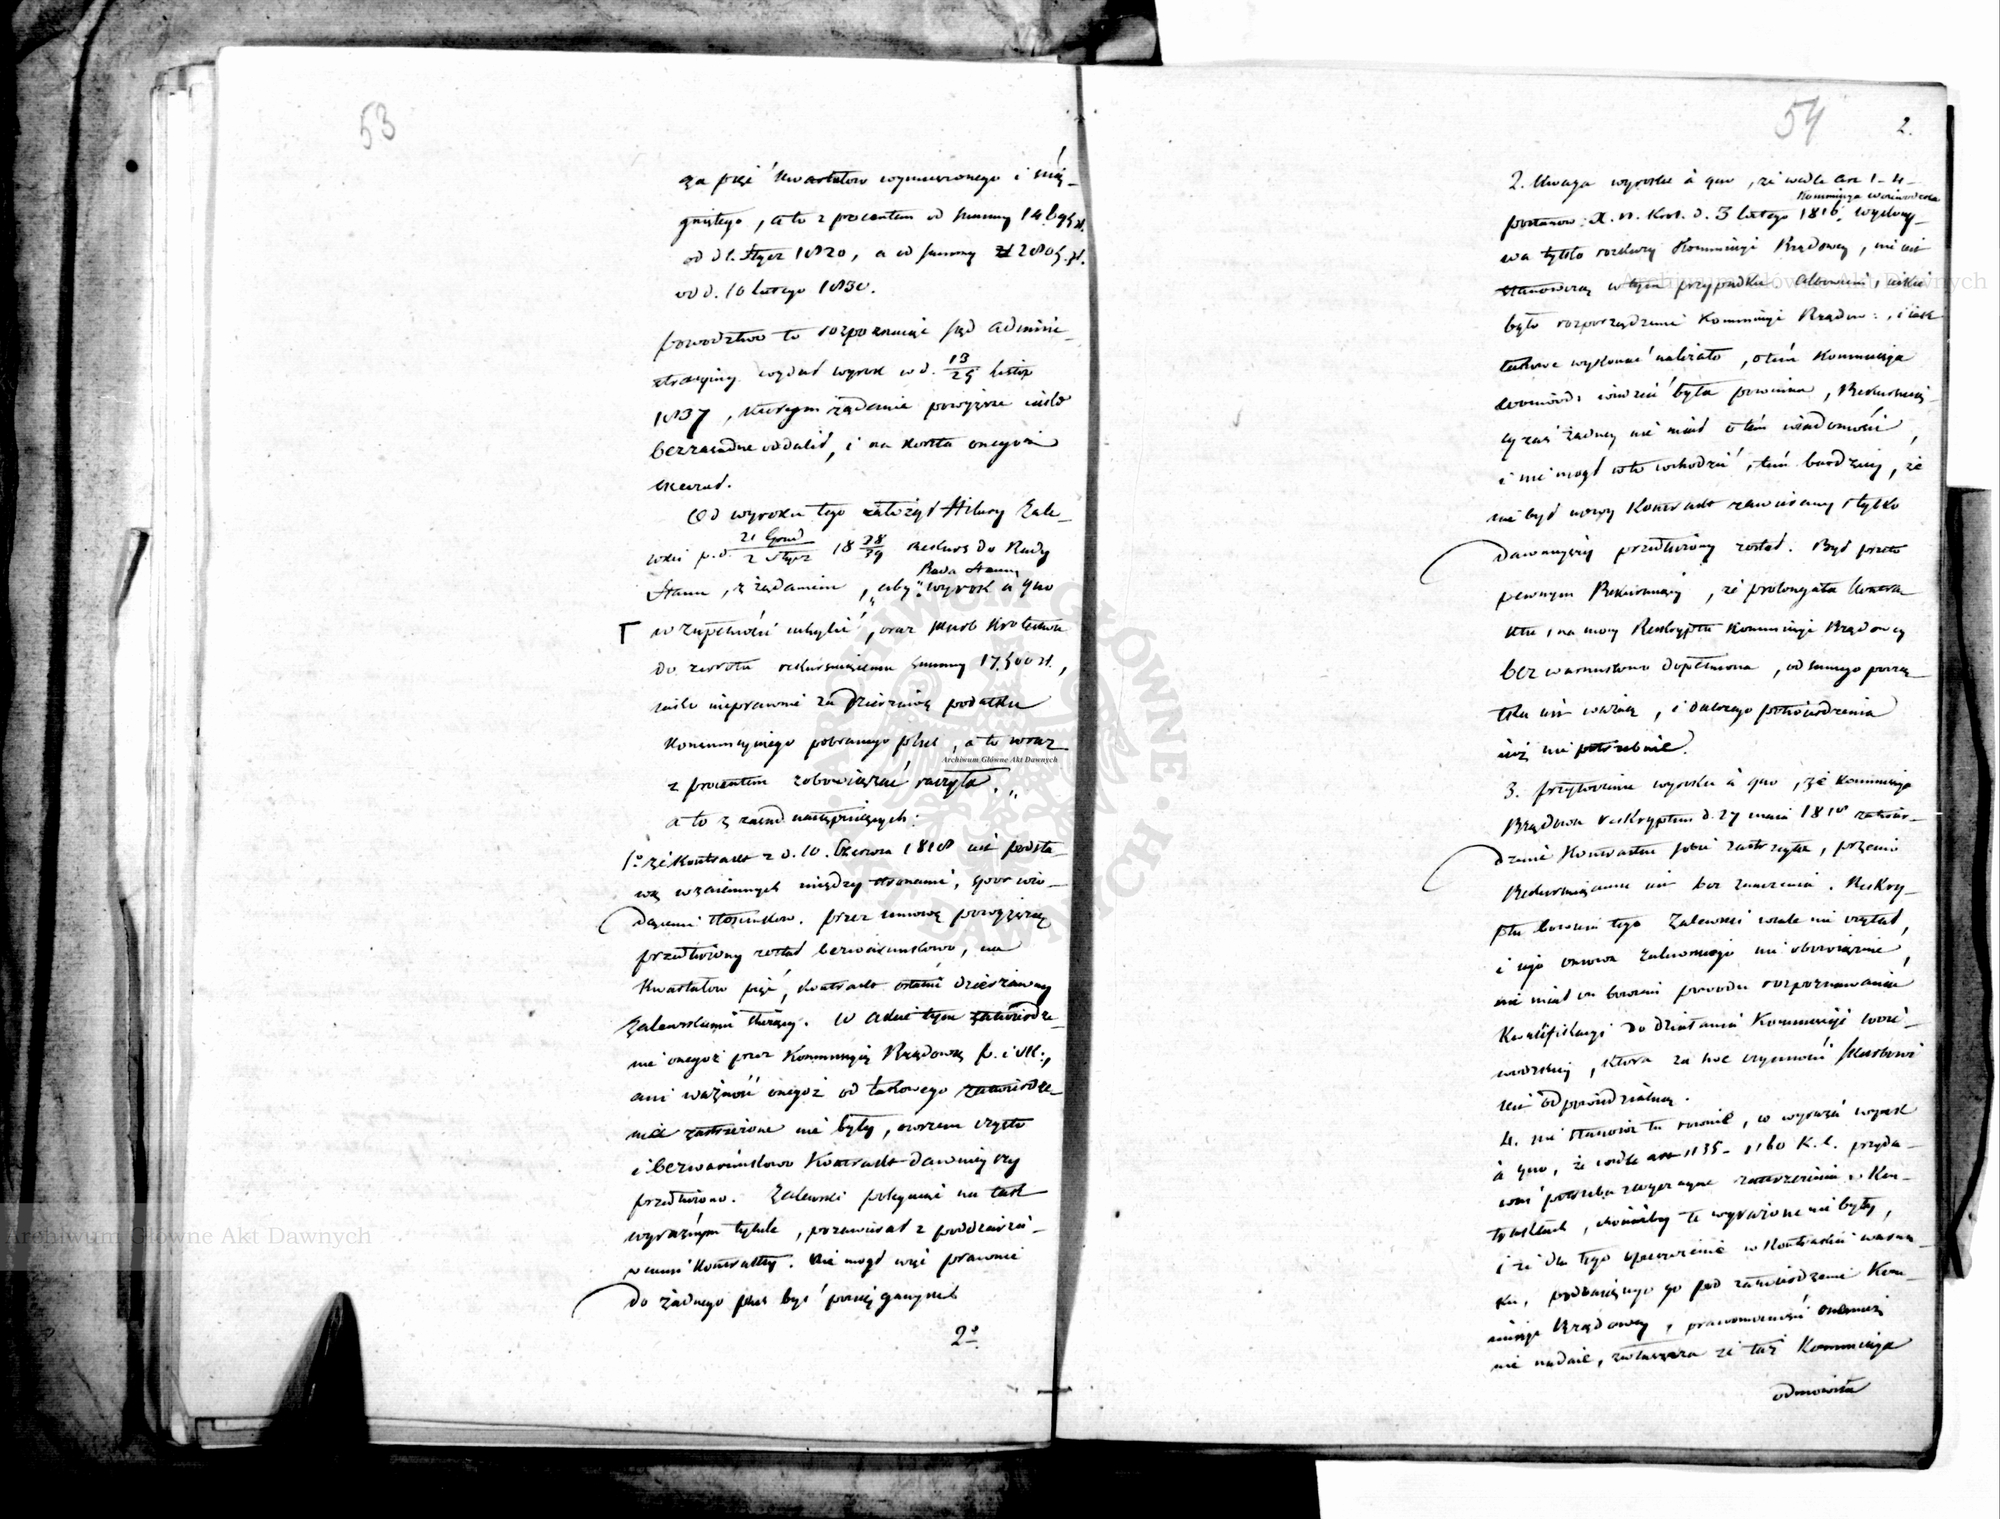 53
za pięć kwartałów wymierzonego i ścią-
gniętego, a to z procentem od summy 14695 zł.
od d 1. Stycz 1820, a od summy 2805 zł.
od d. 10 lutego 1830.
powództwo to rozpoznając sąd admini-
stracyjny wydał wyrok w d. 13/25 listop
1837, którym żądanie powyższe jako
bezzasadne oddalił, i na koszta onegoż
skazał.
Od wyroku tego założył Hilary Zale-
wski p. d 21 Grud/2 Stycz 18 38/39 rekurs do Rady
Stanu, z żądaniem, „aby Rada Stanu wyrok à quo
w zupełności uchylić, oraz skarb Królestwa
do zwrotu rekursującemu summy 17,500 zł.,
jako nieprawnie za dzierżawę podatku
konsumcyjnego pobranego, a to wraz
z procentem zobowiązać raczyła.„
a to z zasad następujących:
1o że kontrakt z d. 10. Czerwca 1818 jest podsta-
wą wzajemnych między stronami, spór wio-
dącemi stosunków. przez umowę powyższą
przedłużony został bezwarunkowo, na
kwartałów pięć, kontrakt ostatni dzierżawny
Zalewskiemu służący. W akcie tym zatwierdze-
nie onegoż przez Kommissyą Rządową p. i Sk:,
ani ważność onegoż od takowego zatwierdze-
nia zastrzeżone nie były, owszem czysto
i bezwarunkowo Kontrakt dawniejszy
przedłużono. Zalewski polegając na tak
wyraźnym tytule, pozawierał z poddzierża-
wcami kontrakty. Nie mógł więc prawnie
do żadnego płac być pociąganym
2o
54
2.
2. Uwaga wyroku à quo, że wedle art 1-4-
postanow: X. N. Król. d. 3 lutego 1816, Kommissya wojewódzka wykony-
wa tylko rozkazy Kommissyi Rządowej, nie jest
stanowczą w tym przypadku. Albowiem, jakie
było rozporządzenie Kommissyi Rządow:, i jak
takowe wykonać należało, o tem Kommissya
wojewód: wiedzieć była powinna, Rekursują-
cy zaś żadnej nie miał o tem wiadomości,
i nie mógł w to wchodzić, tem bardziej, że
nie był nowy Kontrakt zawierany i tylko
dawniejszy przedłużony został. Był przeto
pewnym Rekursujący, że prolongata kontra-
ktu, na mocy Reskryptu Kommissyi Rządowej
bez warunkowo dopełniona, od samego począ-
tku jest ważną, i dalszego potwierdzenia
już nie potrzebuje.
3. przytoczenie wyroku à quo, że Kommissya
Rządowa reskryptem d. 27 maja 1818 zatwier-
dzenie Kontraktu sobie zastrzegła, przeciw
Rekursującemu jest bez znaczenia. Reskry-
ptu bowiem tego Zalewski wcale nie czytał,
i jego osnowa Zalewskiego nie obowiązuje,
nie miał on bowiem powodu rozpoznawania
kwalifikacyi do działania Kommissyi woje-
wódzkiej, która za swe czynności skarbowi
jest odpowiedzialną.
4. nie stanowi tu również, co wyraża wyrok
à quo, że wedle art 1135 - 1160 K. C. przyda-
wać potrzeba zwyczajne zastrzeżenia w Kon-
traktach, chociażby te wyrażone nie były,
i że dla tego opuszczenie w kontrakcie warun-
ku, poddającego go pod zatwierdzenie Kom-
missyi Rządowej, prawomocności onemuż
nie nadaje, zwłaszcza że taż Kommissya
odmówiła